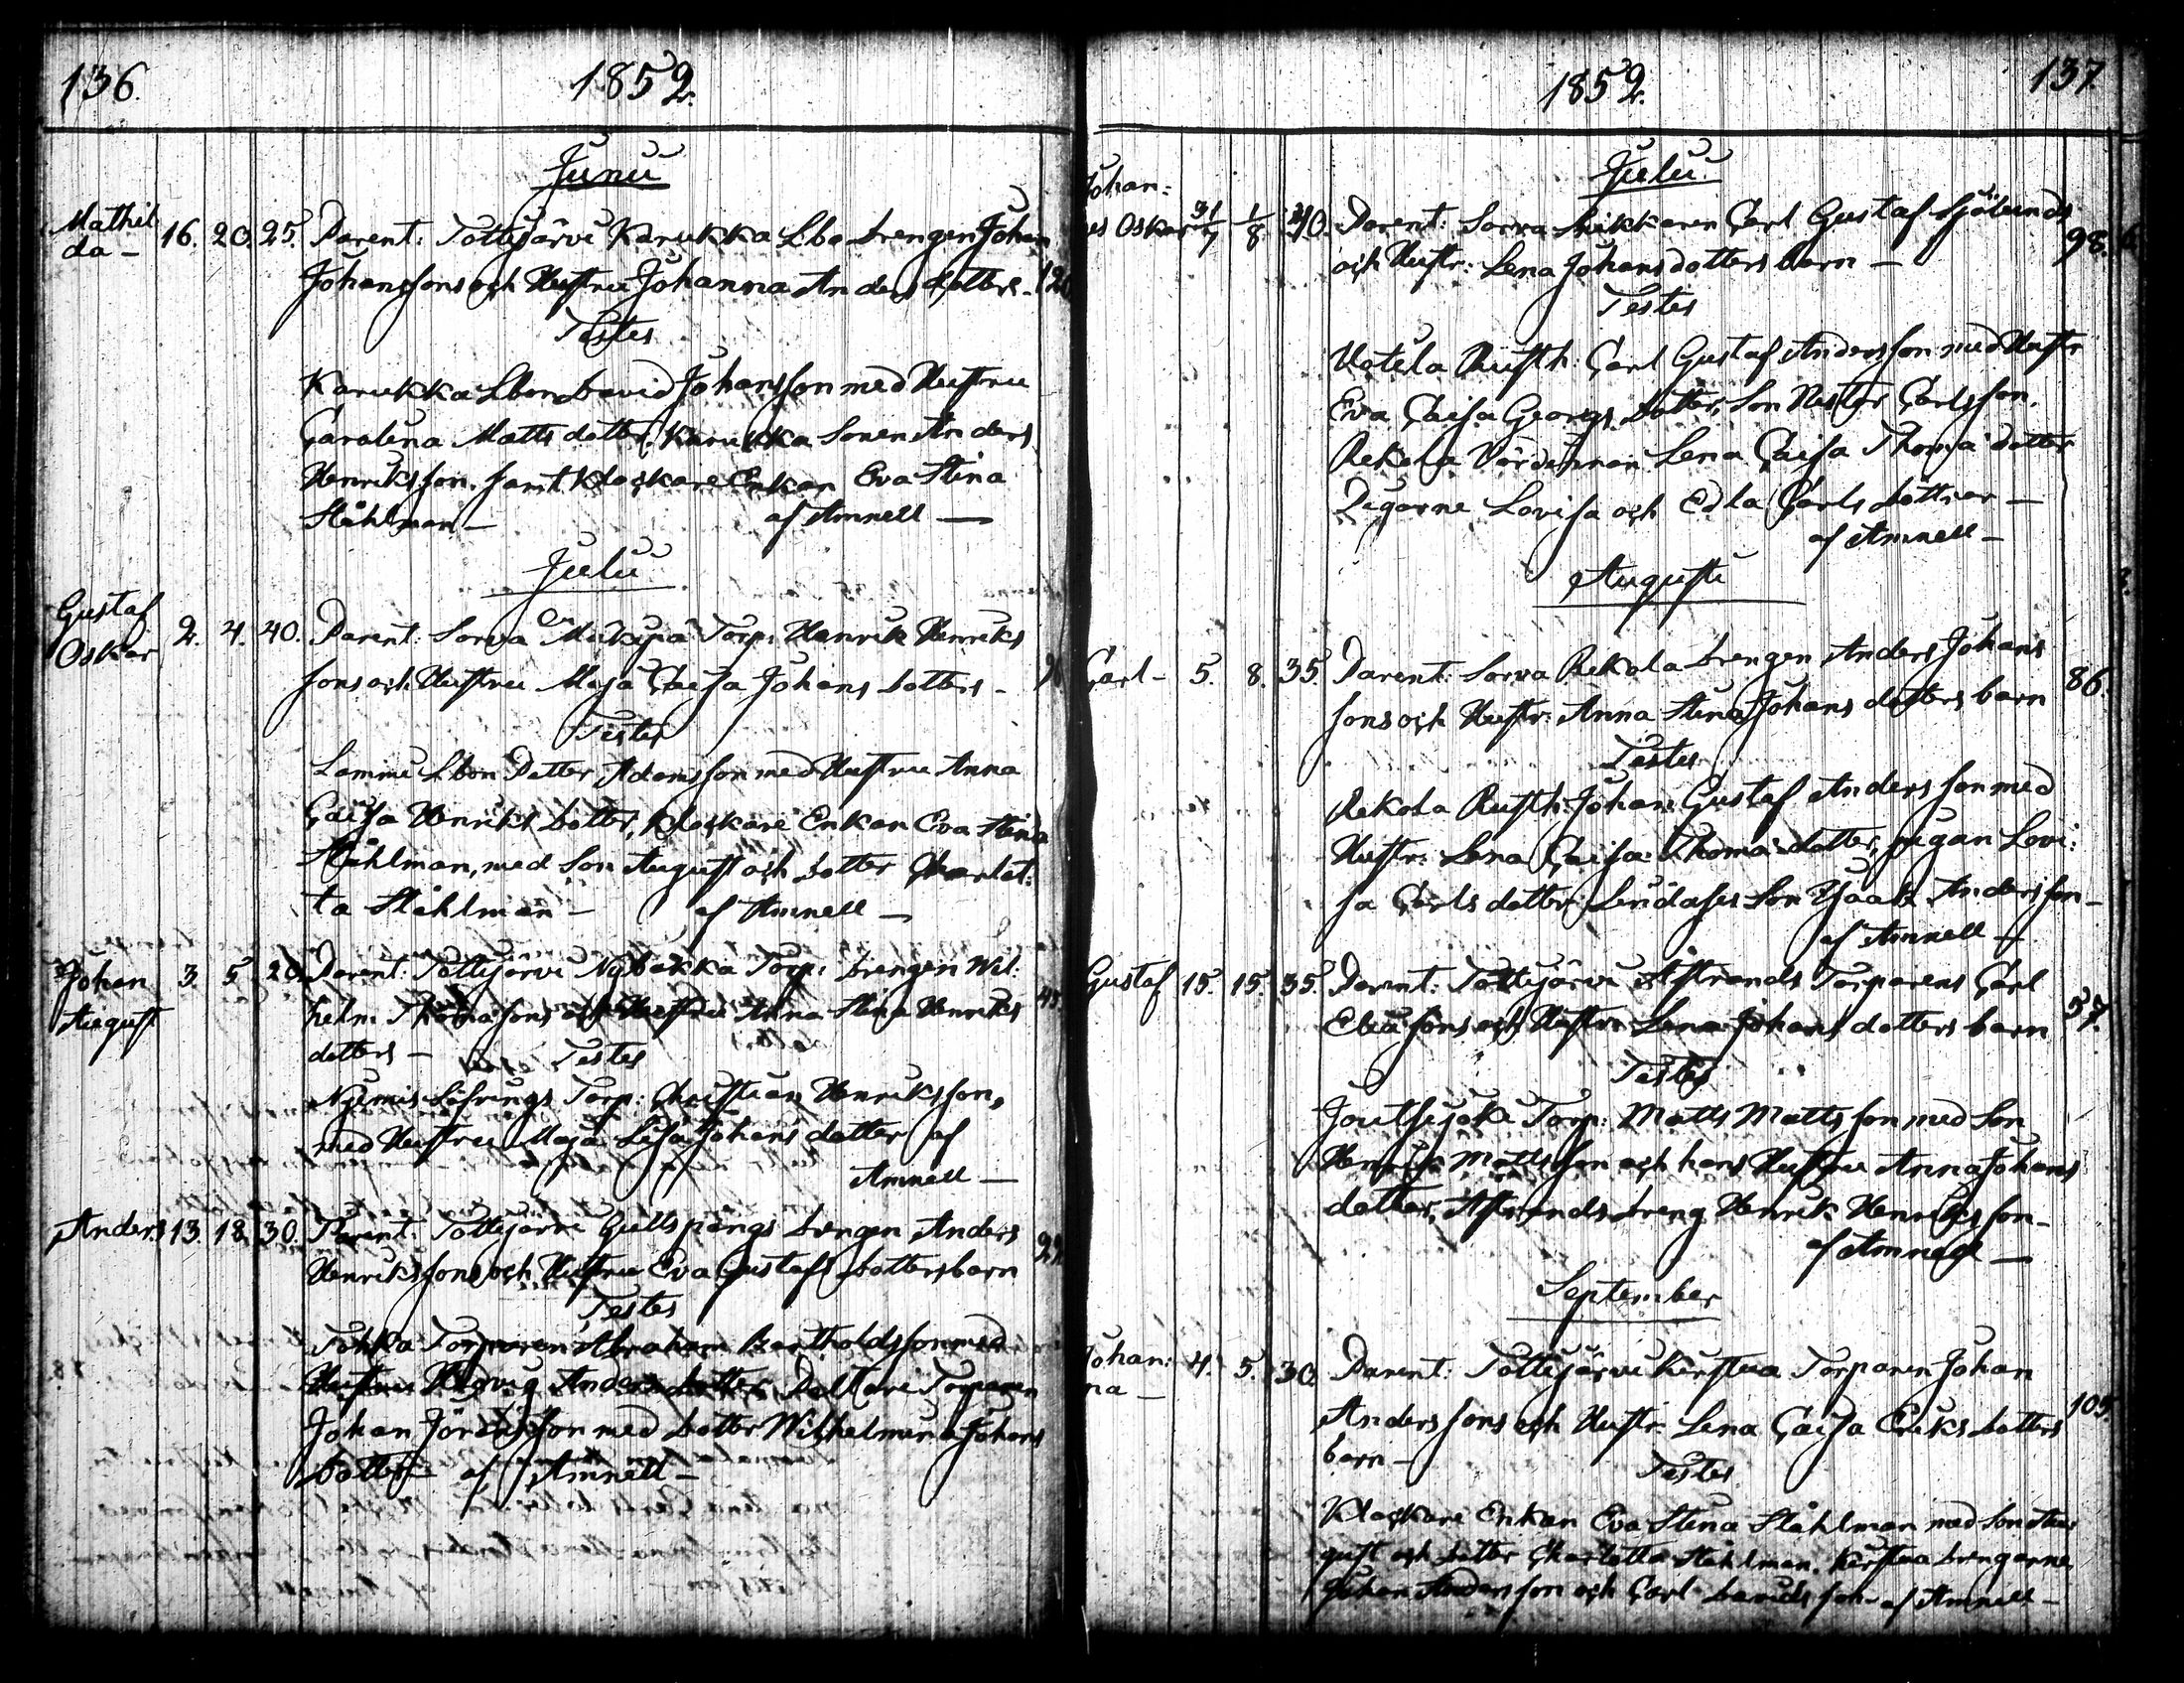 136.
1852.
Junii
Mathil
da –
16. 20. 25. Parent: Tottijärvi Karukka Lbo drengen Johan
Johanssons och Hustru Johanna Anders dotters –
Testes
Karukka Lbon David Johansson med Hustru
Carolina Matts dotter, Karukka Sonen Anders
Henriksson, samt Klockare Enkan Eva Stina
Ståhlman – af Amnell —
Julii
Gustaf
Oskar
2. 4. 40. Parent: Sorva Mäkipä Torp: Henrik Henriks
sons och Hustru Maja Caisa Johans dotters –
Testes
Lammi Lbon Petter Adamsson med Hustru Anna
Caisa Henriks dotter, Klockare Enkan Eva Stina
Ståhlman, med Son August och dotter Charlot:
ta Ståhlman – af Amnell –
Johan
August
3. 5. 20. Parent: Tottijärvi Nybakka Torp: drengen Wil:
helm Thomasons och Hustru Anna Stina Henriks
dotters –
Testes
Nyemis Torp: Christian Henriksson,
med Hustru Maja Lisa Johans dotter af
Amnell —
Anders 13. 18. 30. Parent: Tottijärvi drengen Anders
Henrikssons och Hustru Eva Gustafs dotters barn
Testes
Torparen Abraham Bertholdsson med
Hustru Hedvig Anders dotter, Torparen
Johan med dotter Wilhelmina Johans
dotter – af Amnell –
1852.
137.
Julii
Johan:
es Oskar 31/7 1/8 40. Parent: Sorva Snikkaren Carl Gustaf Sjölunds
och Hustr: Lena Johans dotters barn –
98.
Testes
Rusth: Carl Gustaf Andersson med Hustr
Eva Caisa Georgs dotter, Son Nestor Carlsson.
Rekola Värdinnan Lena Caisa Thoma dotter
Pigorne Lovisa och Edla Carls döttrar –
af Amnell –
Augusti
Carl – 5. 8. 35. Parent: Sorva Rekola drengen Anders Johans
sons och Hustr: Anna Stina Johans dotters barn
86.
Testes
Rekola Rusth: Johan Gustaf Andersson med
Hustr: Lena Caisa Thoma dotter, pigan Lovi:
sa Carls dotter, Son Isaak Andersson –
af Amnell –
Gustaf 15. 15. 35. Parent: Tottijärvi Åstrands Torparens Carl
Eliæsons och Hustru Lena Johans dotters barn
57.
Testes
Joutsijoki Torp: Matts Mattsson med Son
Henrik Mattsson och hans Hustru Anna Johans
dotter, Åstrands dreng Henrik Henriksson –
af Amnell —
September
Johan:
na –
4. 5. 30. Parent: Tottijärvi Kirstua Torparen Johan
Anderssons och Hustr: Lena Caisa Eriks dotters
105.
barn –
Testes
Klockare Enkan Eva Stina Ståhlman med Son Au:
gust och dotter Charlotta Ståhlman. Kirstua drengarne
Johan Andersson och Carl Davidsson – af Amnell –